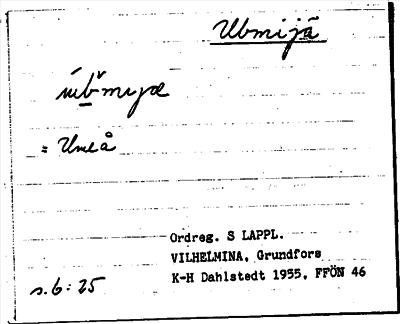 Ubmijä
= Umeå
Ordreg. S LAPPL.
VILHELMINA, Grundfors
K-H Dahlstedt 1955, FFÖN 46
s. 6: 25